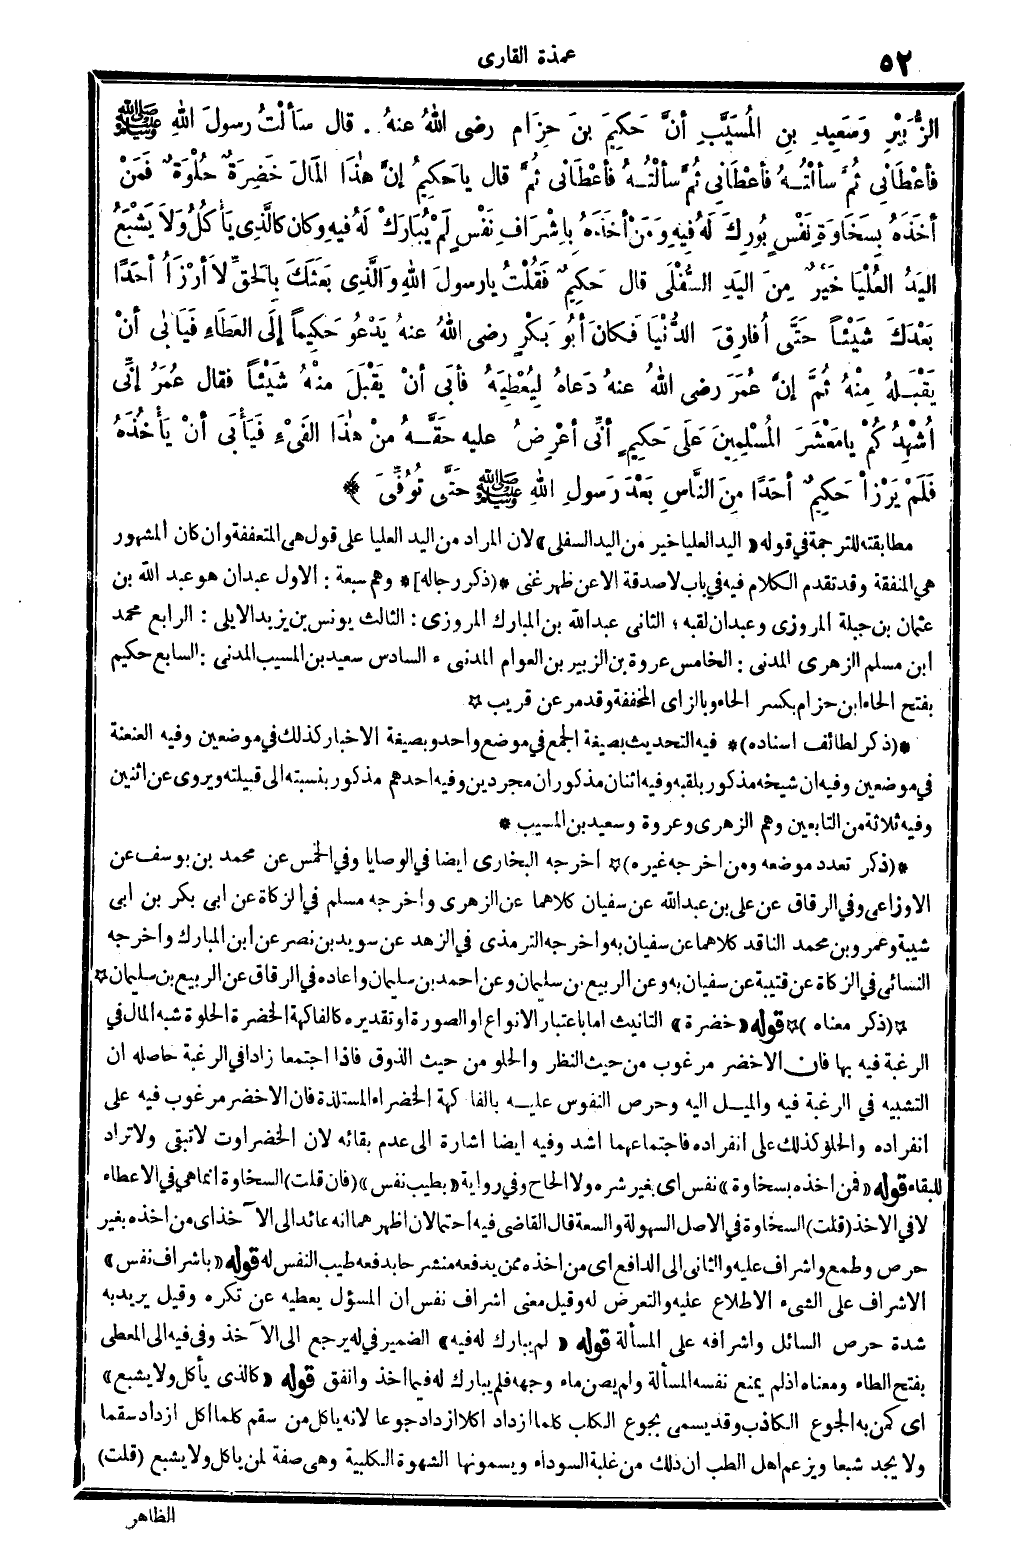 ٥٢
عمدة القارى
الزُّبَيْرِ وَسَعِيدِ بنِ الْمُسَيَّبِ أنَّ حَكِيمَ بنَ حِزَامٍ رضى اللهُ عنهُ .. قال سَأَلْتُ رسولَ اللهِ ﷺ
فأعْطَانِي ثُمَّ سألْتُهُ فأعْطَانِي ثُمَّ سألْتُهُ فأعْطَانى ثُمَّ قال ياحَكِيمُ إنَّ هٰذَا المَالَ خَضِرَةٌ حُلْوَةٌ فَمَنْ
أخَذَهُ بِسَخَاوَةِ نَفْسٍ بُورِكَ لَهُ فِيهِ وَمَنْ أخَذَهُ بِإشْرَافِ نَفْسٍ لَمْ يُبَارَكْ لَهُ فِيهِ وكان كالَّذِى يَأْكُلُ وَلاَ يَشْبَعُ
اليَدُ العُلْيَا خَيْرٌ مِنَ اليَدِ السُّفْلَى قال حَكِيمٌ فَقُلْتُ يارسولَ اللهِ وَالَّذِى بَعَثَكَ بِالحَقِّ لاَ أرْزَأُ أحَدًا
بَعْدَكَ شَيْئاً حَتَّى أُفارِقَ الدُّنْيَا فَكانَ أبُو بَكْرٍ رضى اللهُ عنهُ يَدْعُو حَكِيماً إلَى العَطَاءِ فَيَأْبَى أنْ
يَقْبَلَهُ مِنْهُ ثُمَّ إنَّ عُمَرَ رضى اللهُ عنهُ دَعاهُ لِيُعْطِيَهُ فأبَى أنْ يَقْبَلَ منْهُ شَيْئاً فقال عُمَرُ إنِّى
أُشْهِدُكُمْ يامَعْشَرَ المُسْلِمِينَ عَلَى حَكِيمٍ أنِّى أعْرِضُ عليه حَقَّهُ مِنْ هٰذَا الفَىْءِ فَيَأْبَى أنْ يَأْخُذَهُ
فَلَمْ يَرْزَأْ حَكِيمٌ أحَدًا مِنَ النَّاسِ بَعْدَ رَسولِ اللهِ ﷺ حَتَّى تُوُفِّىَ ﴾
مطابقته للترجمة في قوله «اليد العليا خير من اليد السفلى» لان المراد من اليد العليا على قول هى المتعففة وان كان المشهور
هي المنفقة وقد تقدم الكلام فيه في باب لاصدقة الا عن ظهر غنى *(ذكر رجاله)* وهم سبعة : الاول عبدان هو عبد الله بن
عثمان بن جبلة المروزى وعبدان لقبه ؛ الثانى عبدالله بن المبارك المروزى : الثالث يونس بن يزيد الايلى : الرابع محمد
ابن مسلم الزهرى المدنى : الخامس عروة بن الزبير بن العوام المدنى ؛ السادس سعيد بن المسيب المدنى : السابع حكيم
بفتح الحاء ابن حزام بكسر الحاء وبالزاى المخففة وقد مر عن قريب ☆
*(ذكر لطائف اسناده)* فيه التحديث بصيغة الجمع في موضع واحد وبصيغة الاخبار كذلك في موضعين وفيه العنعنة
في موضعين وفيه ان شيخه مذكور بلقبه وفيه اثنان مذكوران مجردين وفيه احدهم مذكور بنسبته الى قبيلته ويروى عن اثنين
وفيه ثلاثة من التابعين وهم الزهرى وعروة وسعيد بن المسيب *
*(ذكر تعدد موضعه ومن اخرجه غيره)☆ اخرجه البخارى ايضا في الوصايا وفي الخمس عن محمد بن يوسف عن
الاوزاعى وفي الرقاق عن على بن عبدالله عن سفيان كلاهما عن الزهرى واخرجه مسلم في الزكاة عن ابى بكر بن ابى
شيبة وعمرو بن محمد الناقد كلاهما عن سفيان به واخرجه الترمذى في الزهد عن سويد بن نصر عن ابن المبارك واخرجه
النسائى في الزكاة عن قتيبة عن سفيان به وعن الربيع بن سليمان وعن احمد بن سليمان واعاده في الرقاق عن الربيع بن سليمان☆
☆(ذكر معناه)☆ قوله «خضرة» التانيث اما باعتبار الانواع او الصورة او تقديره كالفاكهة الخضرة الحلوة شبه المال في
الرغبة فيه بها فان الاخضر مرغوب من حيث النظر والحلو من حيث الذوق فاذا اجتمعا زادا في الرغبة حاصله ان
التشبيه في الرغبة فيه والميل اليه وحرص النفوس عليه بالفاكهة الخضراء المستلذة فان الاخضر مرغوب فيه على
انفراده والحلو كذلك على انفراده فاجتماعهما اشد وفيه ايضا اشارة الى عدم بقائه لان الخضراوت لاتبقى ولاتراد
للبقاء قوله «فمن اخذه بسخاوة» نفس اى بغير شره ولا الحاح وفي رواية «بطيب نفس» (فان قلت) السخاوة انما هي في الاعطاء
لافي الاخذ (قلت) السخاوة في الاصل السهولة والسعة قال القاضى فيه احتمالان اظهرهما انه عائد الى الآخذ اى من اخذه بغير
حرص وطمع واشراف عليه والثانى الى الدافع اى من اخذه ممن يدفعه منشرحا بدفعه طيب النفس له قوله «باشراف نفس»
الاشراف على الشىء الاطلاع عليه والتعرض له وقيل معنى اشراف نفس ان المسؤل يعطيه عن تكره وقيل يريد به
شدة حرص السائل واشرافه على المسألة قوله «لم يبارك له فيه» الضمير في له يرجع الى الآخذ وفي فيه الى المعطى
بفتح الطاء ومعناه اذ لم يمنع نفسه المسألة ولم يصن ماء وجهه فلم يبارك له فيما اخذ وانفق قوله «كالذى يأكل ولا يشبع»
اى كمن به الجوع الكاذب وقد يسمى بجوع الكلب كلما ازداد اكلا ازداد جوعا لانه يأكل من سقم كلما اكل ازداد سقما
ولا يجد شبعا ويزعم اهل الطب ان ذلك من غلبة السوداء ويسمونها الشهوة الكلبية وهى صفة لمن يأكل ولا يشبع (قلت)
الظاهر